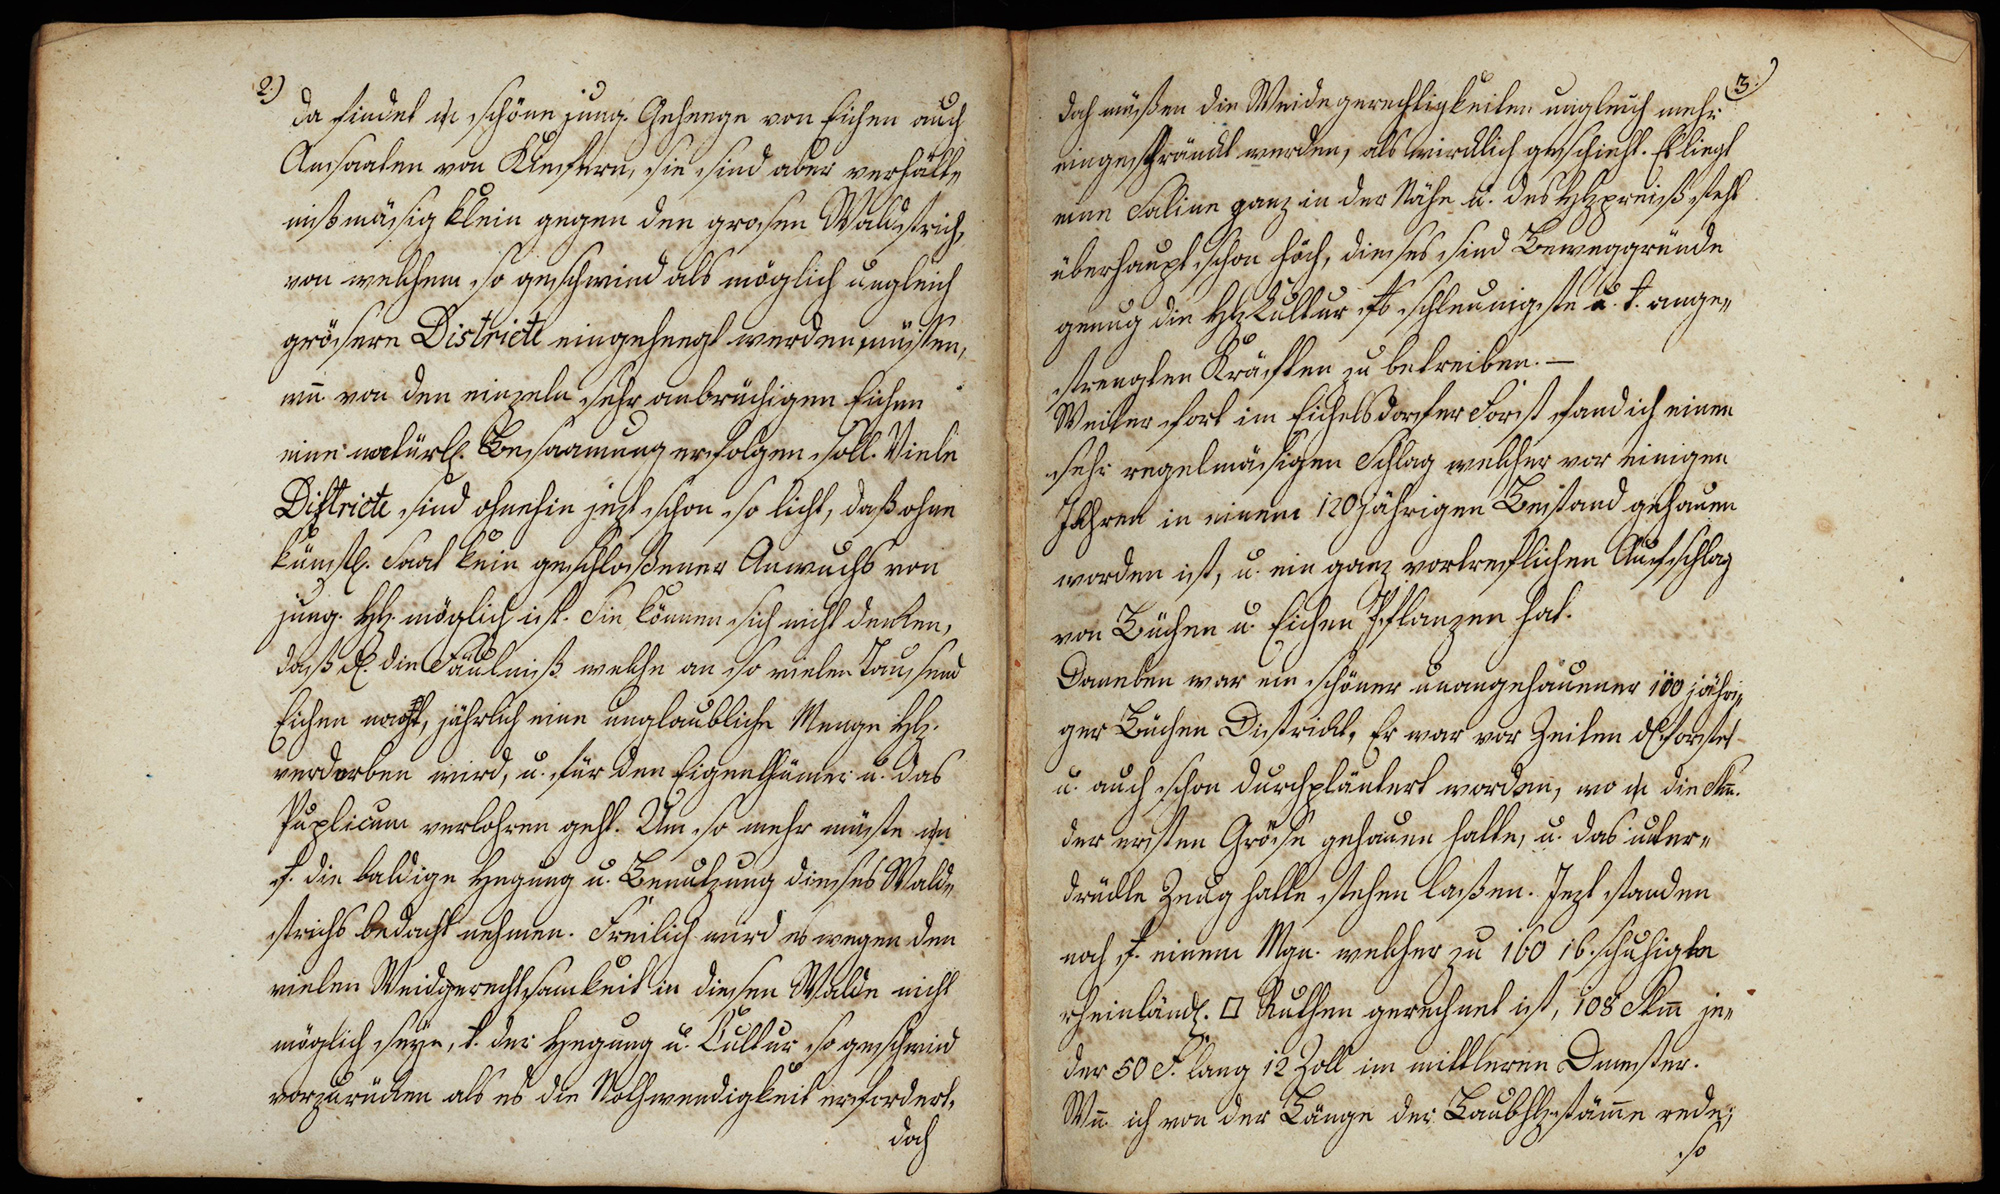 2.)
da findet m schöne jung. Geheege von Eichen auch
Ansaaten von Kiefern, sie sind aber verhält„
nißmäsig klein gegen den grosen Waldstrich,
von welchem so geschwind als möglich ungleich
grösere Districte eingeheegt werden müsten,
wn von den einzeln sehr anbrüchigen Eichen
eine natürl. Besaamung erfolgen soll. Viele
Districte sind ohnehin jezt schon so licht, daß ohne
künstl. Saat kein geschloßener Anwuchs von
jung. Hlz. möglich ist. Sie können sich nicht denken,
daß d. die Fäulniß welche an so vielen Tausend
Eichen nagt, jährlich eine unglaubliche Menge Hlz.
verdorben wird, u. für den Eigenthümer u. das
Puplicum verlohren geht. Um so mehr müste m
f. die baldige Hegung u. Benutzung dieses Wald„
strichs bedacht nehmen. Freilich wird es wegen den
vielen Weidgerechtsamkeit in diesen Walde nicht
möglich seyn, der Hegung u. Cultur so geschwind
vorzurücken als es die Nothwendigkeit erfordert,
doch
3.)
doch müßen die Weidegerechtigkeiten ungleich mehr
eingeschränkt werden, als wircklich geschieht. Es liegt
eine Saline ganz in der Nähe u. des Hlzpreiß steht
überhaupt schon hoch, dieses sind Beweggründe
genug die HlzCultur schleunigste u. ange„
strengten Kräften zu betreiben. —
Weiter fort im Eichelsdorfer Forst fand ich einen
sehr regelmäsigen Schlag welcher vor einigen
Jahren in einem 120 jährigen Bestand gehauen
worden ist, u. ein ganz vortreflichen Aufschlag
von Buchen u. Eichen Pflanzen hat.
Daneben war ein schöner unangehauener 100 jähri„
ger Buchen District, Er war vor Zeiten
u. auch schon durchpläntert worden, wo m die Stm.
der ersten Gröse gehauen hatte, u. das unter„
drückte Zeug hatte stehen laßen. Jezt standen
noch f. einem Mgn. welcher zu 160 16. schuhigte
rheinländ. □ Ruthen gerechnet ist, 108 Stm je„
der 50 F. lang 12 Zoll im mittleren Dmester.
Wn ich von der Länge der Laubhlzstäme rede,
so